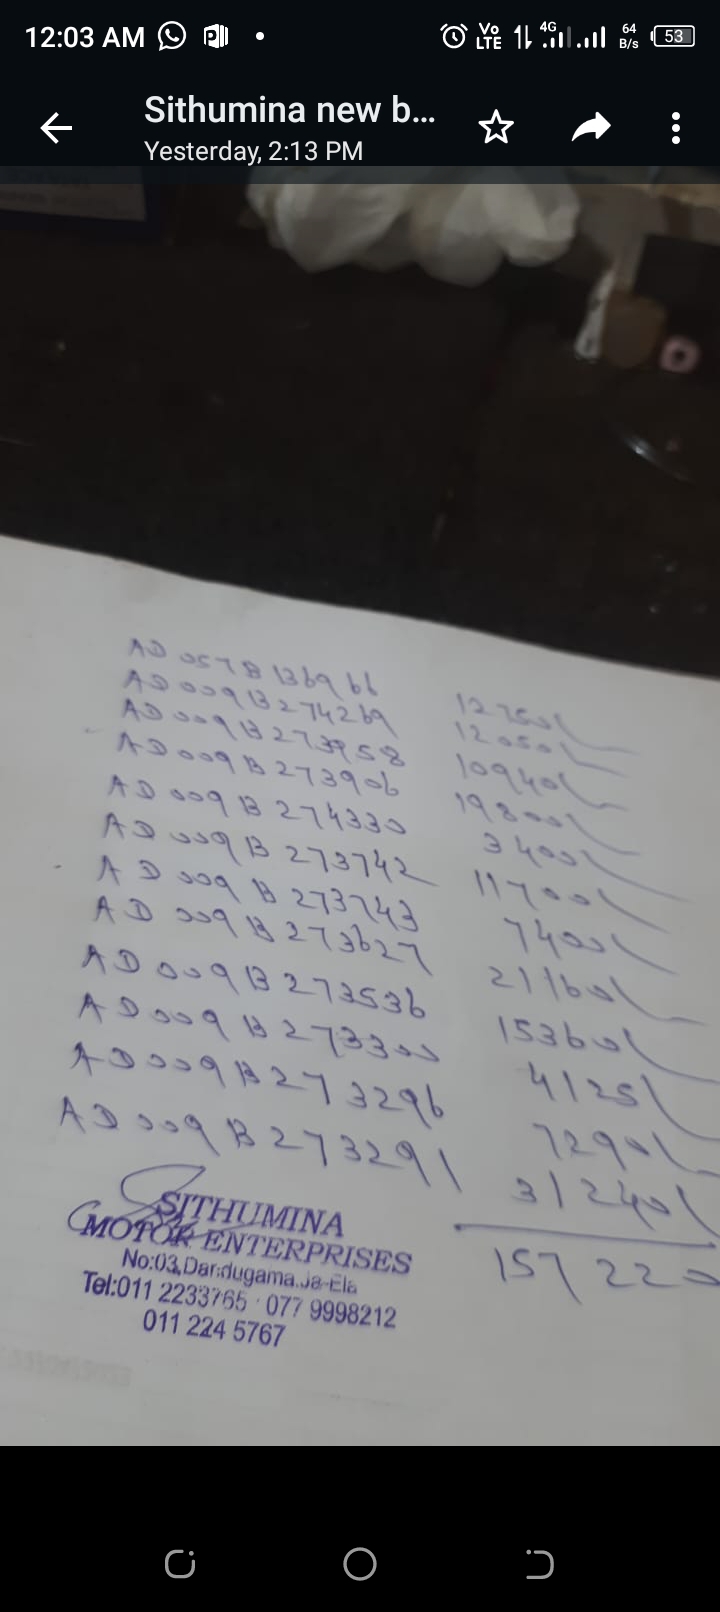 12:03 AM
Vo LTE 4G 64 B/s 53
Sithumina new b...
Yesterday, 2:13 PM
AD 057B136966 12750/
AD 009B274269 12050/
AD 009B273958 10940/
AD 009B273906 19800/
AD 009B274330 3400/
AD 009B273742 11700/
AD 009B273743 7400/
AD 009B273627 21160/
AD 009B273536 15360/
AD 009B273300 4125/
AD 009B273296 7290/
AD 009B273291 31240/
157220
SITHUMINA
MOTOR ENTERPRISES
No:03,Dandugama.Ja-Ela
Tel:011 2233765 · 077 9998212
011 224 5767